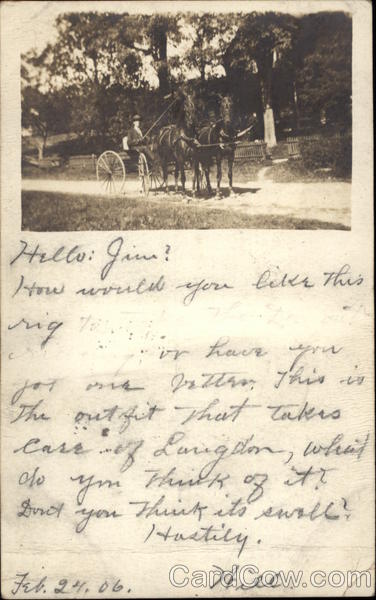 Hello: Jim?
How would you like this
rig
or have you
got one better. This is
the outfit that takes
care of Langdon, what
do you think of it?
Don't you think its swell?
Hastily.
Feb. 24. 06.
CardCow.com